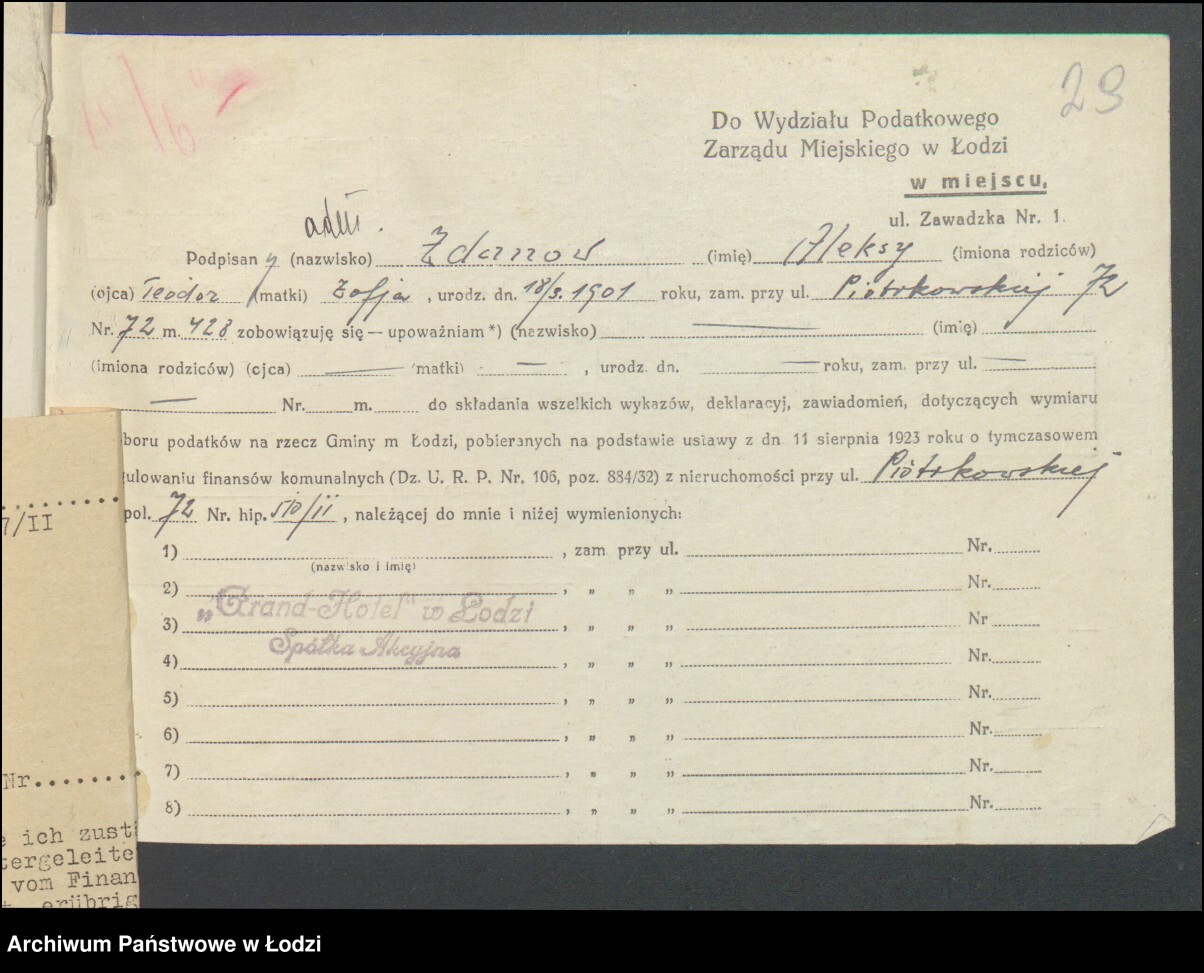 29
Do Wydziału Podatkowego
Zarządu Miejskiego w Łodzi
w miejscu,
ul. Zawadzka Nr. 1.
Podpisany (nazwisko) Zdanow (imię) Aleksy (imiona rodziców)
(ojca) Teodor (matki) Zofja, urodz. dn. 18/3. 1901 roku, zam. przy ul. Piotrkowskiej 72
Nr. 72 m. 428 zobowiązuję się — upoważniam *) (nazwisko) (imię)
(imiona rodziców) (ojca) (matki) , urodz. dn. roku, zam. przy ul.
Nr. m. do składania wszelkich wykazów, deklaracyj, zawiadomień, dotyczących wymiaru
boru podatków na rzecz Gminy m Łodzi, pobieranych na podstawie ustawy z dn 11 sierpnia 1923 roku o tymczasowem
ulowaniu finansów komunalnych (Dz. U. R. P. Nr. 106, poz. 884/32) z nieruchomości przy ul. Piotrkowskiej
pol. 72 Nr. hip. 510/II, należącej do mnie i niżej wymienionych:
1) , zam przy ul. Nr.
(nazwisko i imię)
2) , „ „ „ Nr.
„Grand-Hotel" w Łodzi
3) , „ „ „ Nr
Spółka Akcyjna
4) , „ „ „ Nr.
5) , „ „ „ Nr.
6) , „ „ „ Nr.
7) , „ „ „ Nr.
8) , „ „ „ Nr.
7/II
Nr........
e ich zust
tergeleite
vom Finan
erübrig
Archiwum Państwowe w Łodzi